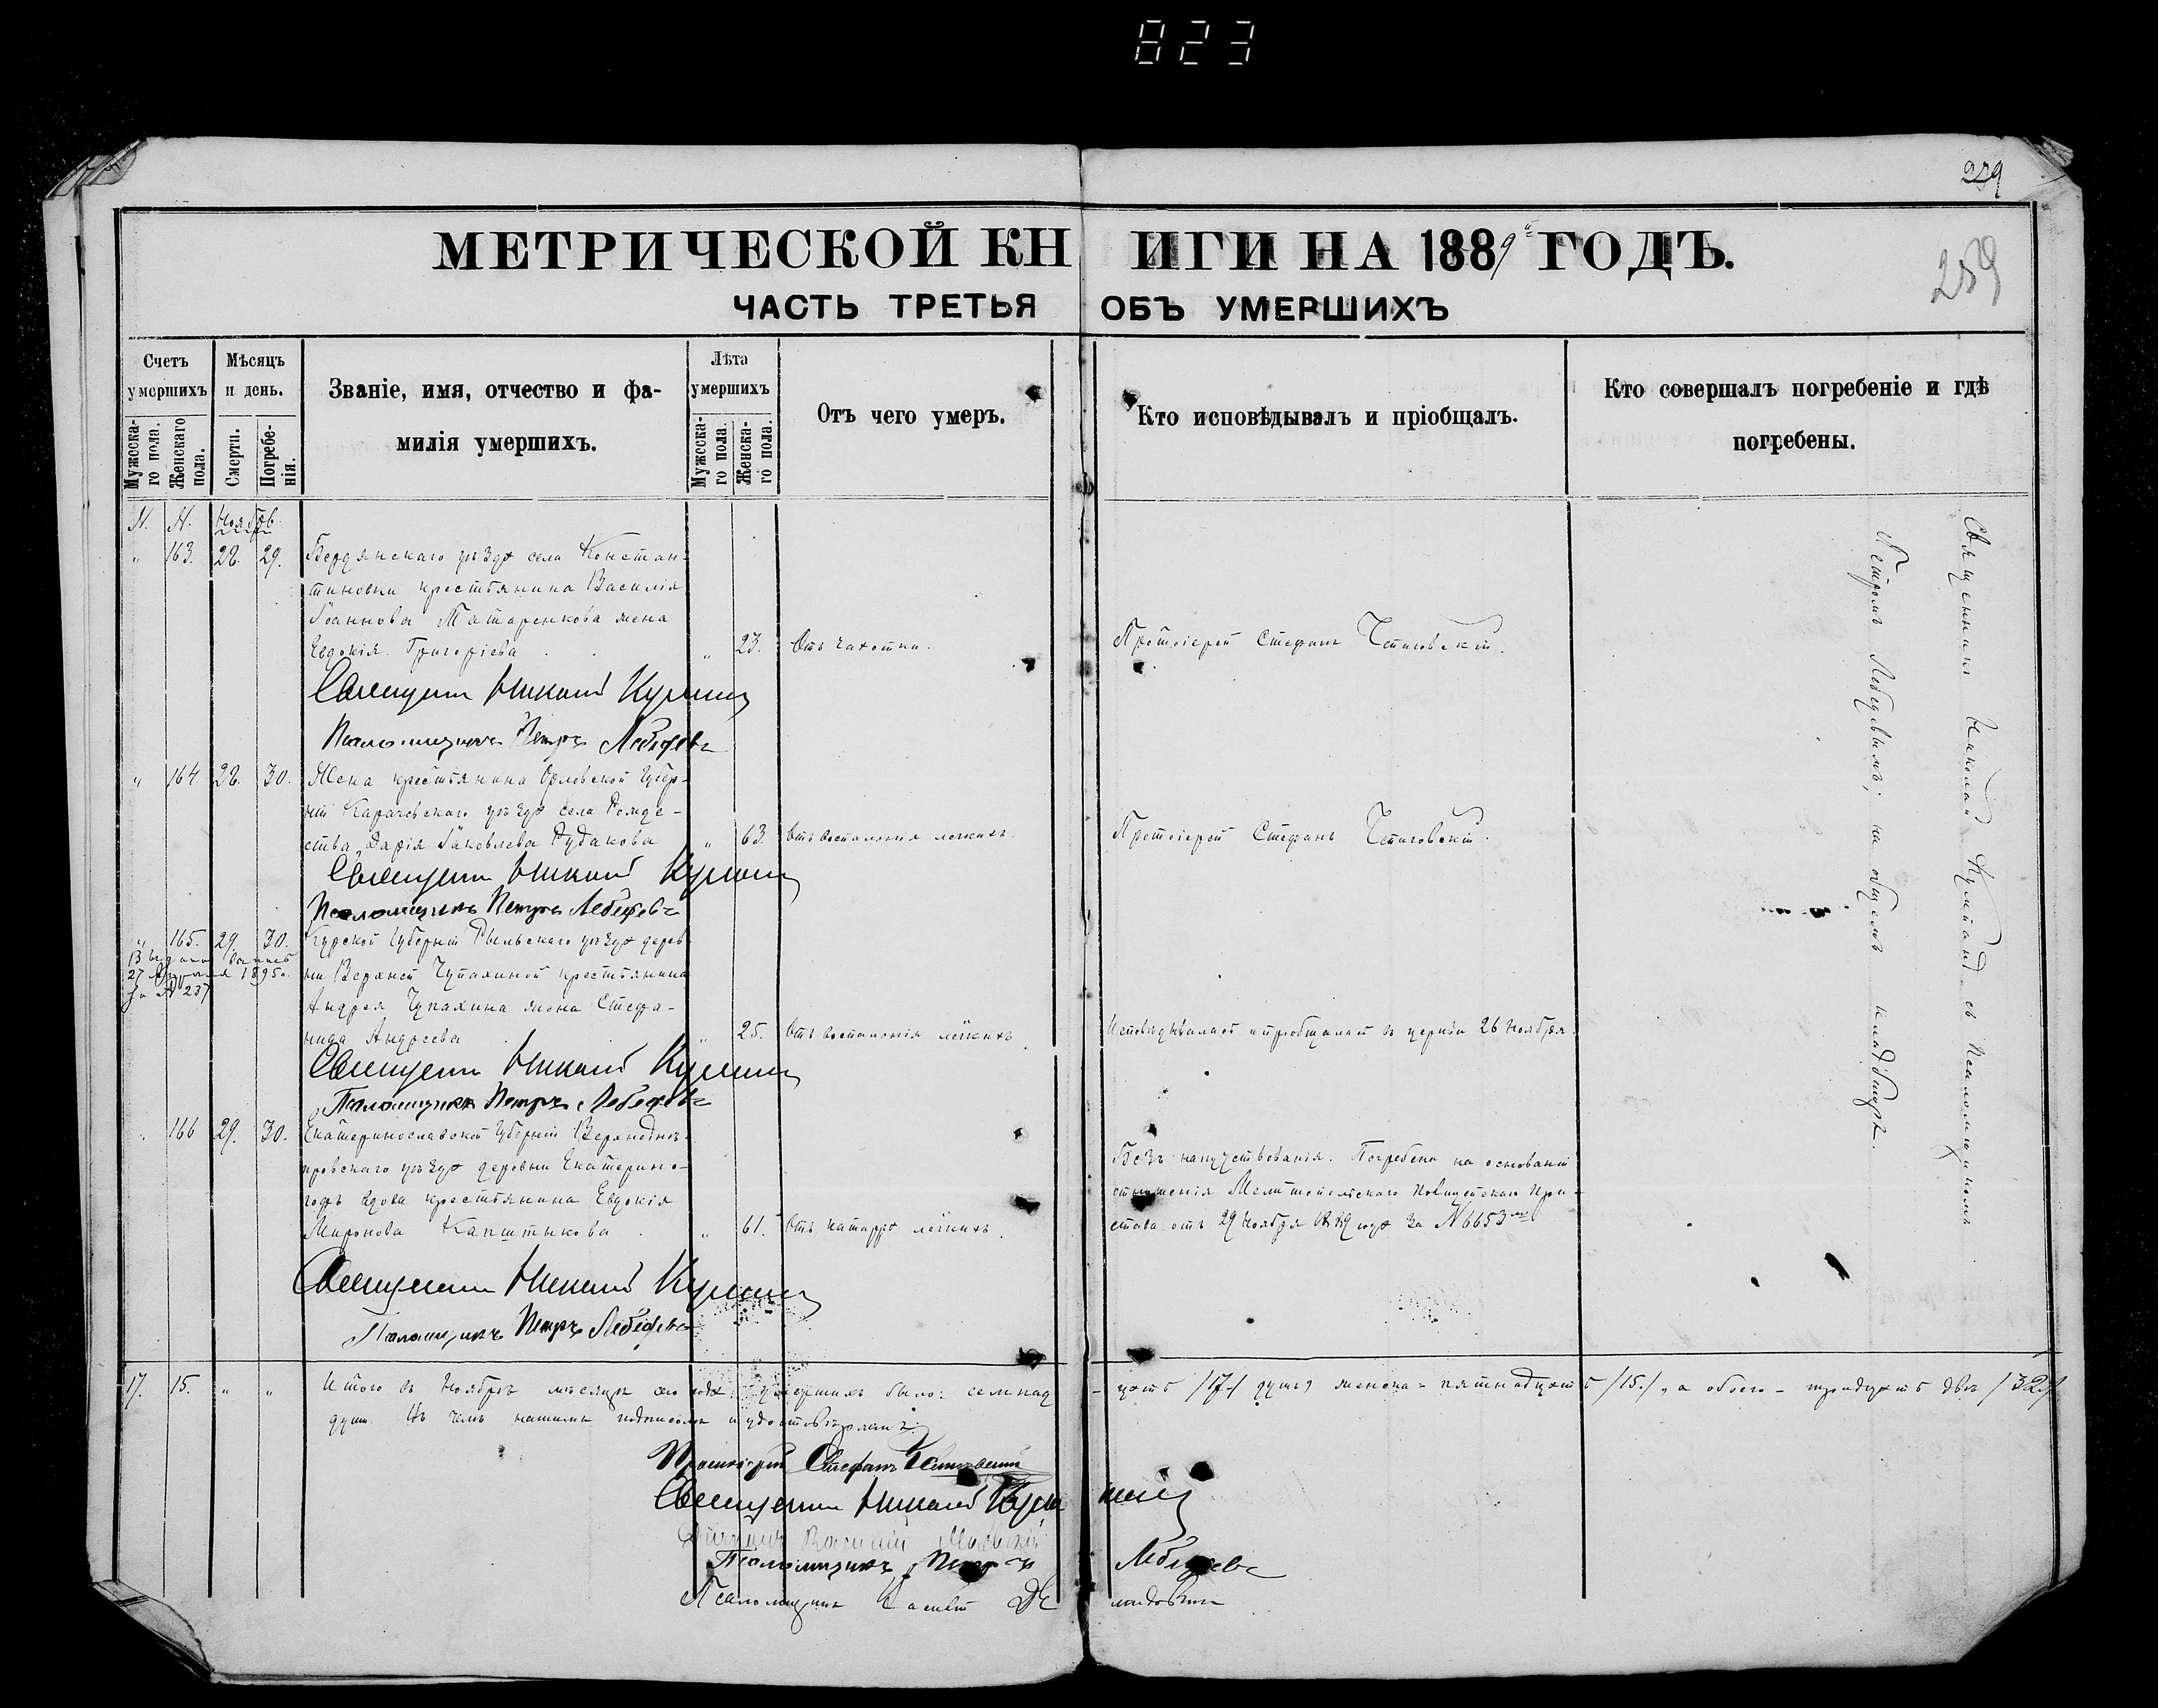 823
259
МЕТРИЧЕСКОЙ КНИГИ НА 1889 ГОДЪ.
259
ЧАСТЬ ТРЕТЬЯ ОБЪ УМЕРШИХЪ
Счетъ умершихъ
Мужескаго пола.
Женскаго пола.
Мѣсяцъ и день.
Смерти.
Погребенія.
Званіе, имя, отчество и фамилія умершихъ.
Лѣта умершихъ
Мужескаго пола.
Женскаго пола.
Отъ чего умеръ.
Кто исповѣдывалъ и пріобщалъ.
Кто совершалъ погребеніе и гдѣ погребены.
Ноябрь
" 163. 28. 29. Бердянскаго уѣзда села Констан-
тиновки крестьянина Василія
Іоаннова Татаренкова жена
Евдокія Григоріева " 23. Отъ чахотки. Протоіерей Стефанъ
Священникъ Николай
Псаломщикъ Петръ Лебедевъ
" 164 28. 30. Жена крестьянина Орловской Губер-
ніи Карачевскаго уѣзда села Рожде-
ства, Дарія Іаковлева Рудакова " 63. Отъ воспаленія легкихъ. Протоіерей Стефанъ
Священникъ Николай
Псаломщикъ Петръ Лебедевъ
" 165. 29. 30. Курской Губерніи Рыльскаго уѣзда дерев-
ни Верхней Чупахиной крестьянина
Андрея Чупахина жена Стефа-
нида Андреева " 25. Отъ воспаленія легкихъ. Исповѣдывалась и пріобщалась въ церкви 26 Ноября.
27 Апрѣля 1895 г.
за № 237
Священникъ Николай
Псаломщикъ Петръ Лебедевъ
" 166 29. 30. Екатеринославской Губерніи Верхнеднѣ-
провскаго уѣзда деревни
вдова крестьянина Евдокія
Миронова " 61. Отъ катарра легкихъ.
Безъ напутствованія. Погребена на основаніи
отношенія Мелитопольскаго Полицейскаго При-
става отъ 29 Ноября 1889 года за № 6653
Священникъ Николай
Псаломщикъ Петръ Лебедевъ
Священникъ Николай съ Псаломщикомъ
Петромъ Лебедевымъ; на общемъ кладбищѣ.
17. 15. " " Итого въ Ноябрѣ мѣсяцѣ сего года умершихъ было: семнад-цать /17/ душъ, женска- пятнадцать /15/, а обоего- тридцать двѣ /32/
душъ. Въ чемъ нашимъ подписомъ и удостовѣряемъ:
Протоіерей Стефанъ
Священникъ Николай
Василій
Псаломщикъ Петръ Лебедевъ
Псаломщикъ